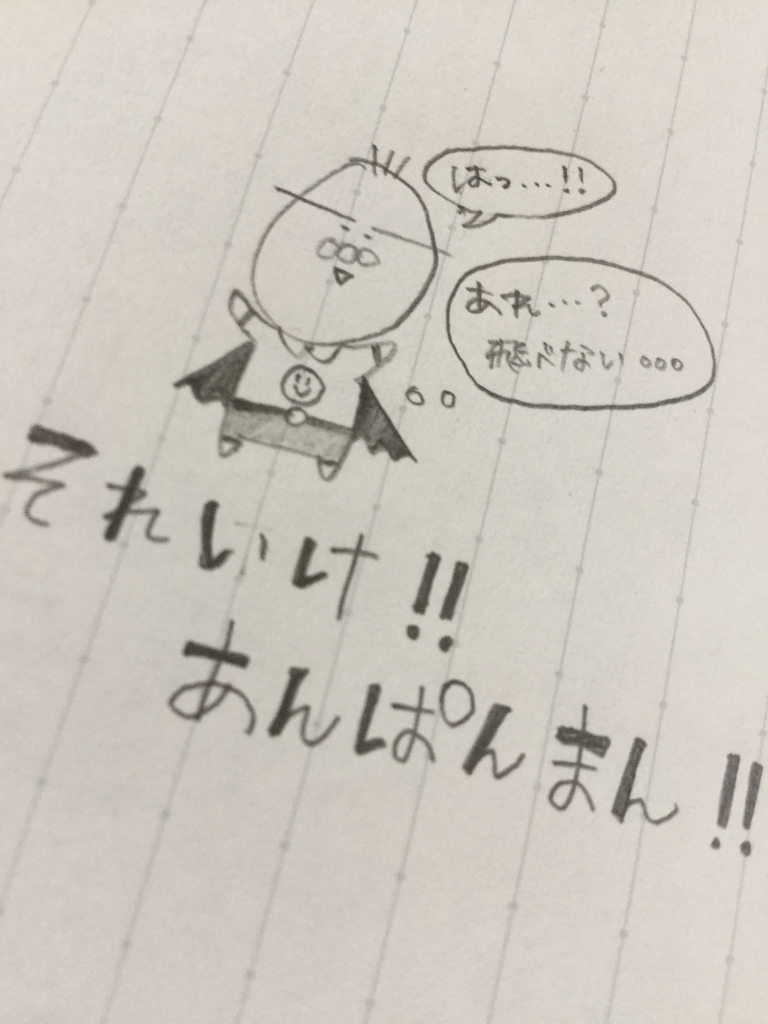 はっ…!!
あれ…?
飛べない。。。
それいけ!!
あんぱんまん!!